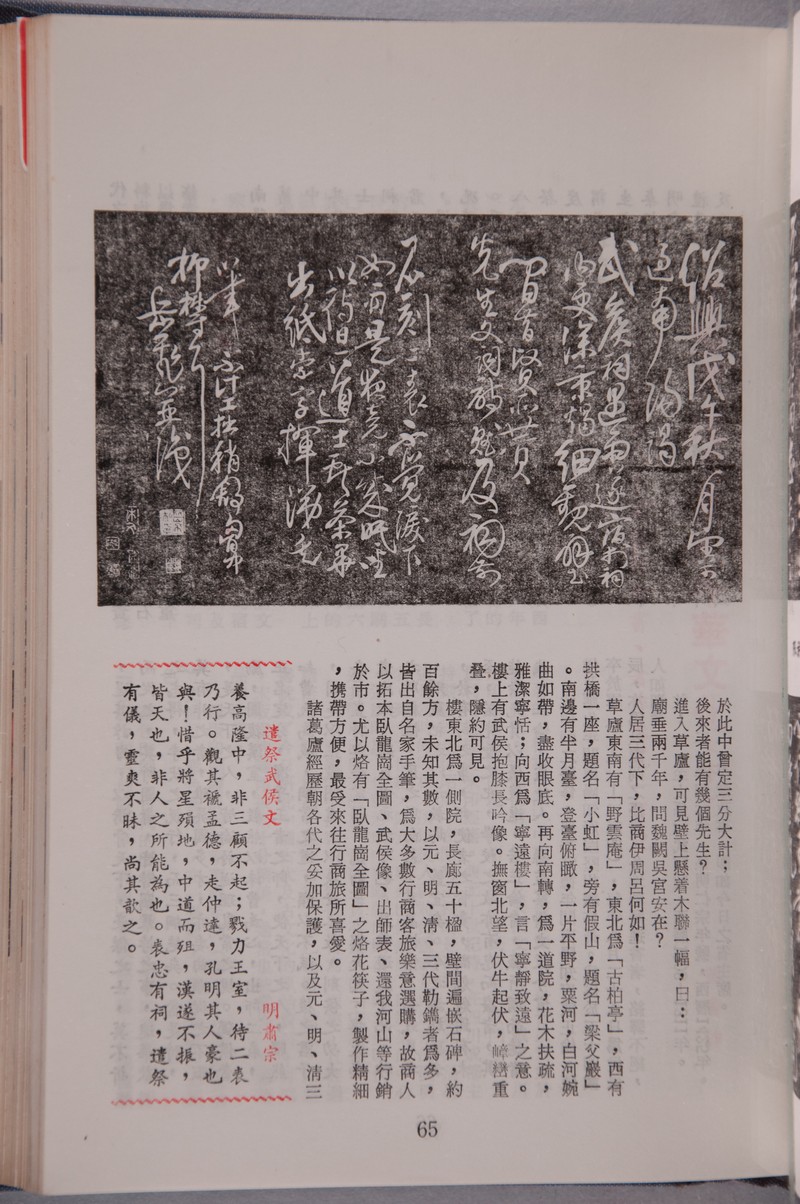 紹興戊午秋八月望前
過南陽謁
武侯祠遇雨遂宿於祠
內更深秉燭細觀壁
間昔賢所贊
先生文詞詩賦及祠前
石刻二表不覺淚下
如雨是夜竟不成眠坐
以待旦道士獻茶畢
出紙索字揮涕走
筆不計工拙稍舒胸中
抑鬱耳
岳飛並識
於此中曾定三分大計；
後來者能有幾個先生？
進入草廬，可見壁上懸着木聯一幅，曰：
廟垂兩千年，問魏闕吳宮安在？
人居三代下，比商伊周呂何如！
草廬東南有「野雲庵」，東北爲「古柏亭」，西有
拱橋一座，題名「小虹」，旁有假山，題名「梁父巖」
。南邊有半月臺，登臺俯瞰，一片平野，粟河，白河婉
曲如帶，盡收眼底。再向南轉，爲一道院，花木扶疏，
雅潔寧恬；向西爲「寧遠樓」，言「寧靜致遠」之意。
樓上有武侯抱膝長吟像。撫窗北望，伏牛起伏，嶂巒重
叠，隱約可見。
樓東北爲一側院，長廊五十楹，壁間遍嵌石碑，約
百餘方，未知其數，以元、明、清、三代勒鐫者爲多，
皆出自名家手筆，爲大多數行商客旅樂意選購，故商人
以拓本臥龍崗全圖、武侯像、出師表、還我河山等行銷
於市。尤以烙有「臥龍崗全圖」之烙花筷子，製作精細
，携帶方便，最受來往行商旅所喜愛。
諸葛廬經歷朝各代之妥加保護，以及元、明、清三
遣祭武侯文　明肅宗
養高隆中，非三顧不起；戮力王室，待二表
乃行。觀其褫孟德，走仲達，孔明其人豪也
與！惜乎將星殞地，中道而殂，漢遂不振，
皆天也，非人之所能為也。表忠有祠，遣祭
有儀，靈爽不昧，尚其歆之。
65